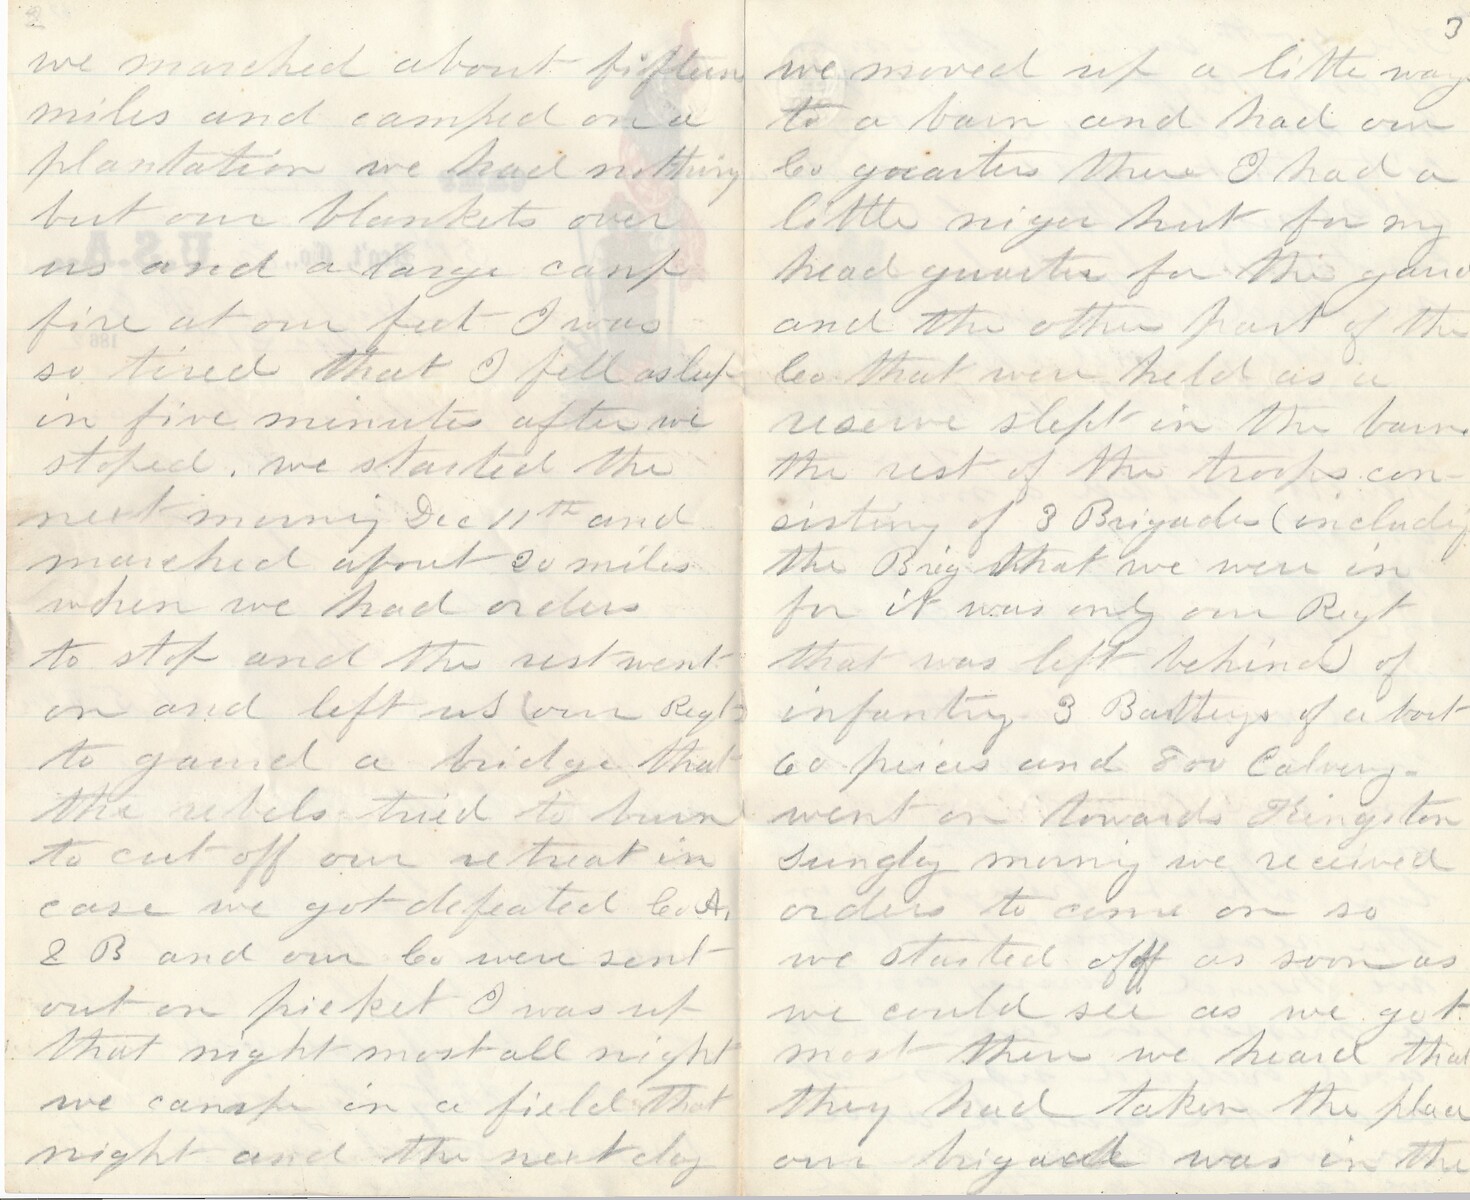 2
we marched about fifteen
miles and camped on a
plantation we had nothing
but our blankets over
us and a large camp
fire at our feet I was
so tired that I fell asleep
in five minutes after we
stoped. we started the
next morning Dec 11th and
marched about 20 miles
when we had orders
to stop and the rest went
on and left us (our Regt)
to gaurd a bridge that
the rebels tried to burn
to cut off our retreat in
case we got defeated Co A,
& B and our Co were sent
out on picket I was up
that night most all night
we camp in a field that
night and the next day
3
we moved up a little way
to a barn and had our
Co quarters there I had a
little niger hut for my
head quarters for the gaurd
and the other part of the
Co that were held as a
reserve slept in the barn
the rest of the troops con-
sisting of 3 Brigades (including
the Brig that we were in
for it was only our Regt
that was left behind) of
infantry 3 Batterys of about
60 peices and 800 Calvery-
went on towards Kingston
morning we received
orders to come on so
we started off as soon as
we could see as we got
most there we heard that
they had taken the place
our brigade was in the